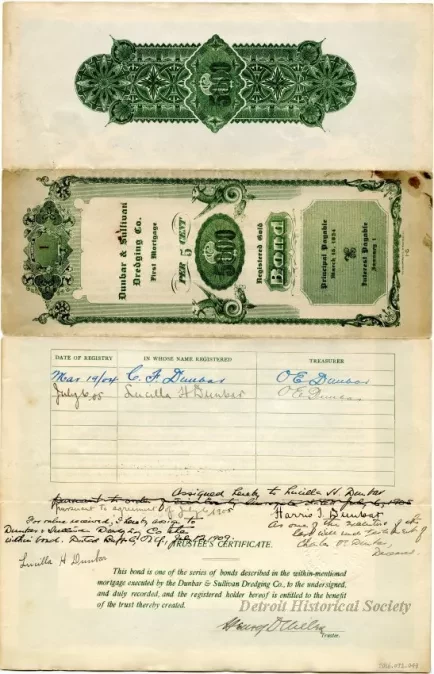 5000
Dunbar & Sullivan
Dredging Co.
First Mortgage
5 PER CENT
5000
Registered Gold
Bond
Principal Payable
March 15, 1924
Interest Payable
1
DATE OF REGISTRY IN WHOSE NAME REGISTERED TREASURER
Mar 19/04 C. F. Dunbar O E Dunbar
July 6, 05 Lucilla H Dunbar O E Dunbar
Assigned hereby to Lucilla H. Dunbar
pursuant to agreement of July 6, 1905
Harris T. Dunbar
As one of the Executors of the
last will and testament of
Charles F. Dunbar
Deceased
For value received, I hereby assign to
Dunbar & Sullivan Dredging Co. the
within bond. Dated Buffalo, N.Y., July 1909.
Lucilla H Dunbar
TRUSTEE'S CERTIFICATE.
This bond is one of the series of bonds described in the within-mentioned
mortgage executed by the Dunbar & Sullivan Dredging Co., to the undersigned,
and duly recorded, and the registered holder hereof is entitled to the benefit
of the trust thereby created.
Detroit Historical Society
Trustee.